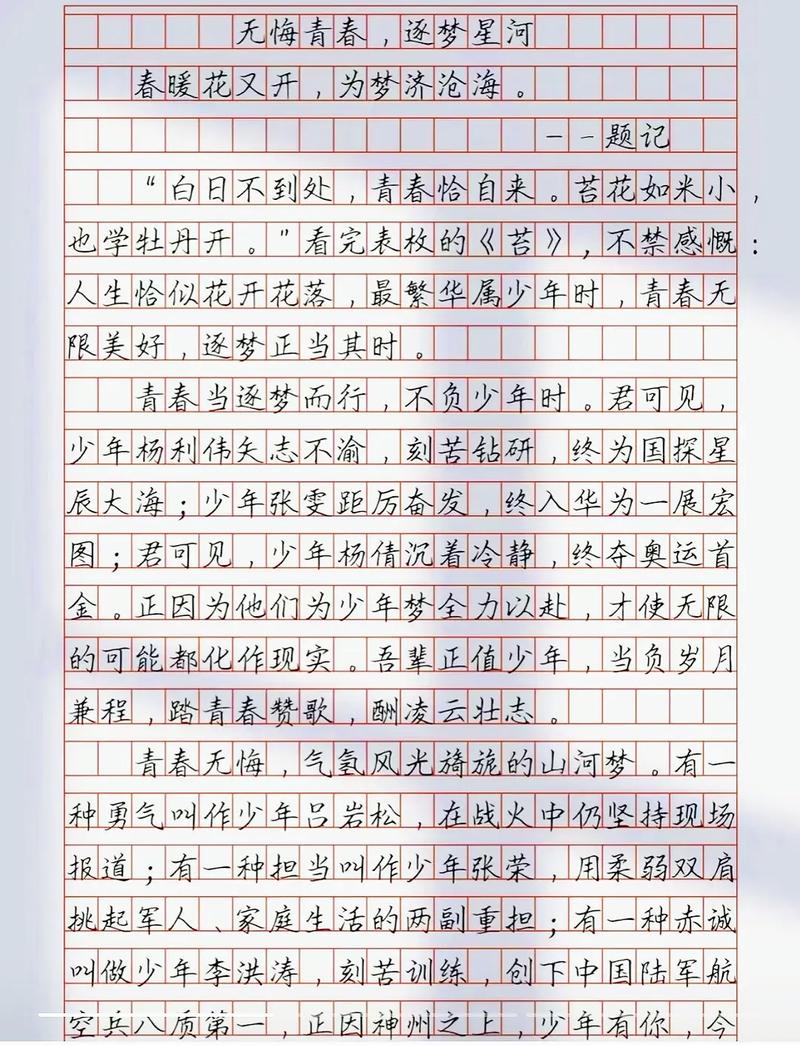 无悔青春，逐梦星河
春暖花又开，为梦济沧海。
——题记
“白日不到处，青春恰自来。苔花如米小，
也学牡丹开。”看完表枚的《苔》，不禁感慨：
人生恰似花开花落，最繁华属少年时，青春无
限美好，逐梦正当其时。
青春当逐梦而行，不负少年时。君可见，
少年杨利伟矢志不渝，刻苦钻研，终为国探星
辰大海；少年张雯距厉奋发，终入华为一展宏
图；君可见，少年杨倩沉着冷静，终夺奥运首
金。正因为他们为少年梦全力以赴，才使无限
的可能都化作现实。吾辈正值少年，当负岁月
兼程，踏青春赞歌，酬凌云壮志。
青春无悔，气氢风光旖旎的山河梦。有一
种勇气叫作少年吕岩松，在战火中仍坚持现场
报道；有一种担当叫作少年张荣，用柔弱双肩
挑起军人、家庭生活的两副重担；有一种赤诚
叫做少年李洪涛，刻苦训练，创下中国陆军航
空兵八质第一，正因神州之上，少年有你，今